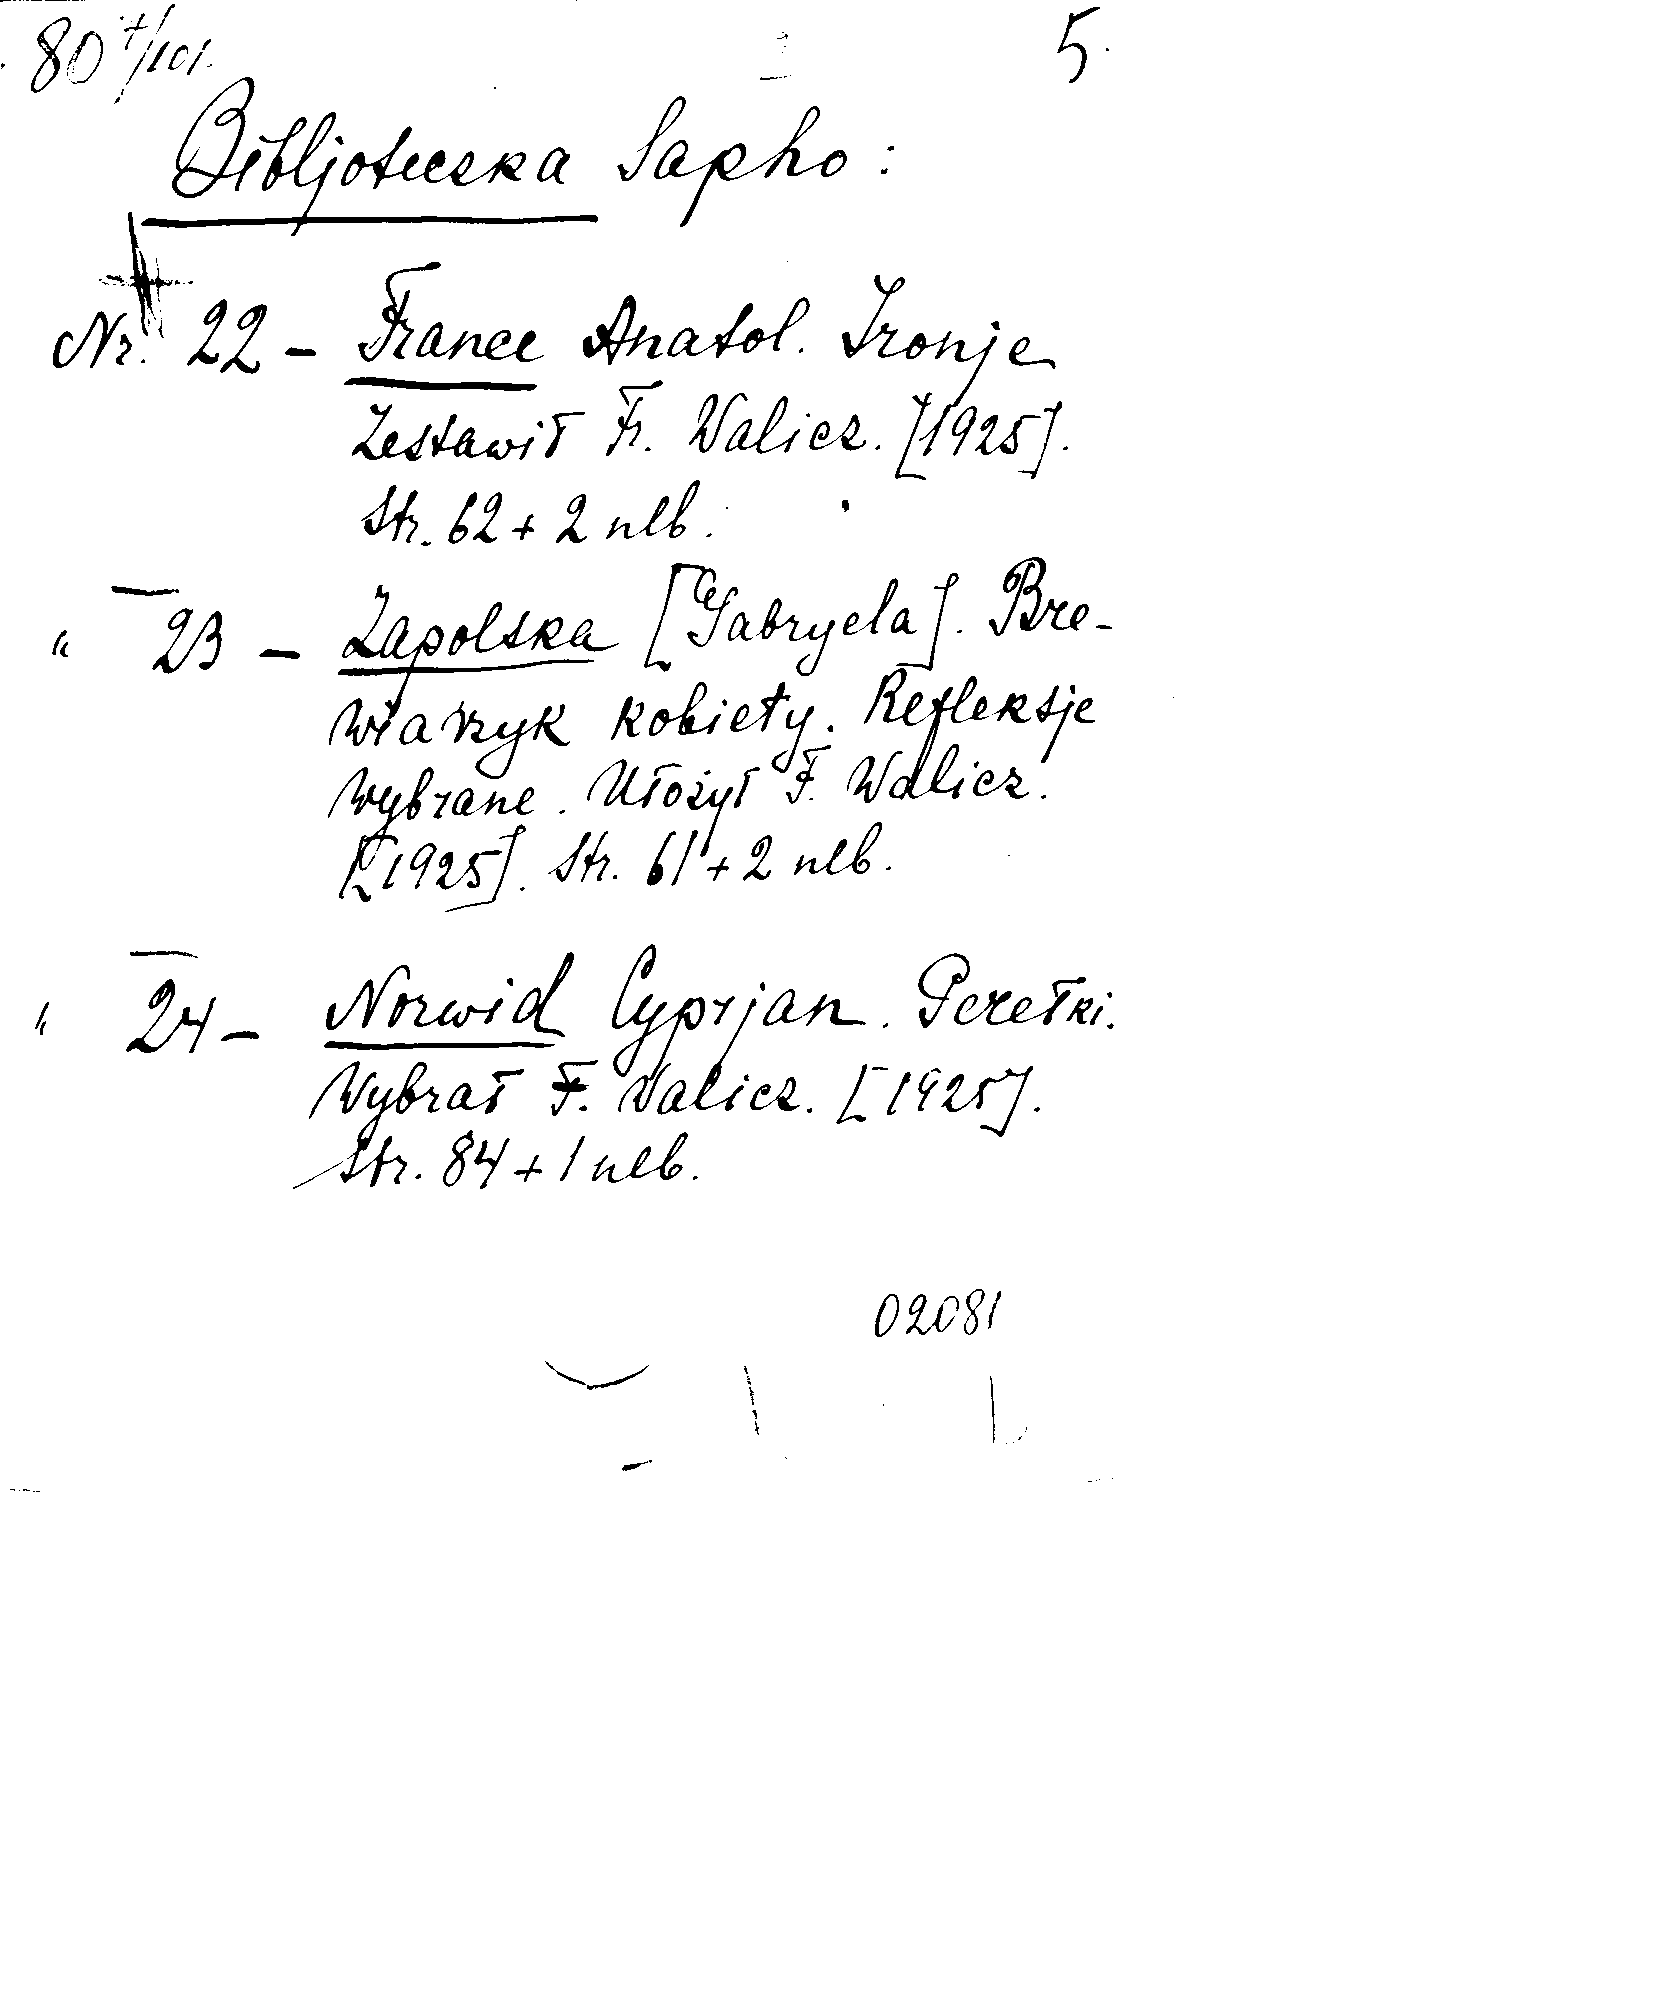 80 +/101. 5.
Bibljoteczka Sapho:
Nr. 22 - France Anatol. Ironje
Zestawił Fr. Walicz. [1925].
Str. 62 + 2 nlb.
" 23 - Zapolska [Gabryela]. Bre-
wiarzyk kobiety. Refleksje
wybrane. Ułożył F. Walicz.
[1925]. Str. 61 + 2 nlb.
" 24 - Norwid Cyprjan. Perełki.
Wybrał F. Walicz. [1925].
Str. 84 + 1 nlb.
02081